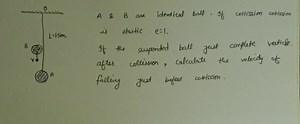 B
A & B are identical ball. If collision
is elastic e=1.
L=1.5m
If the suspended ball just complete vertical
B
after collision, calculate the velocity of
V
falling just before collision.
A